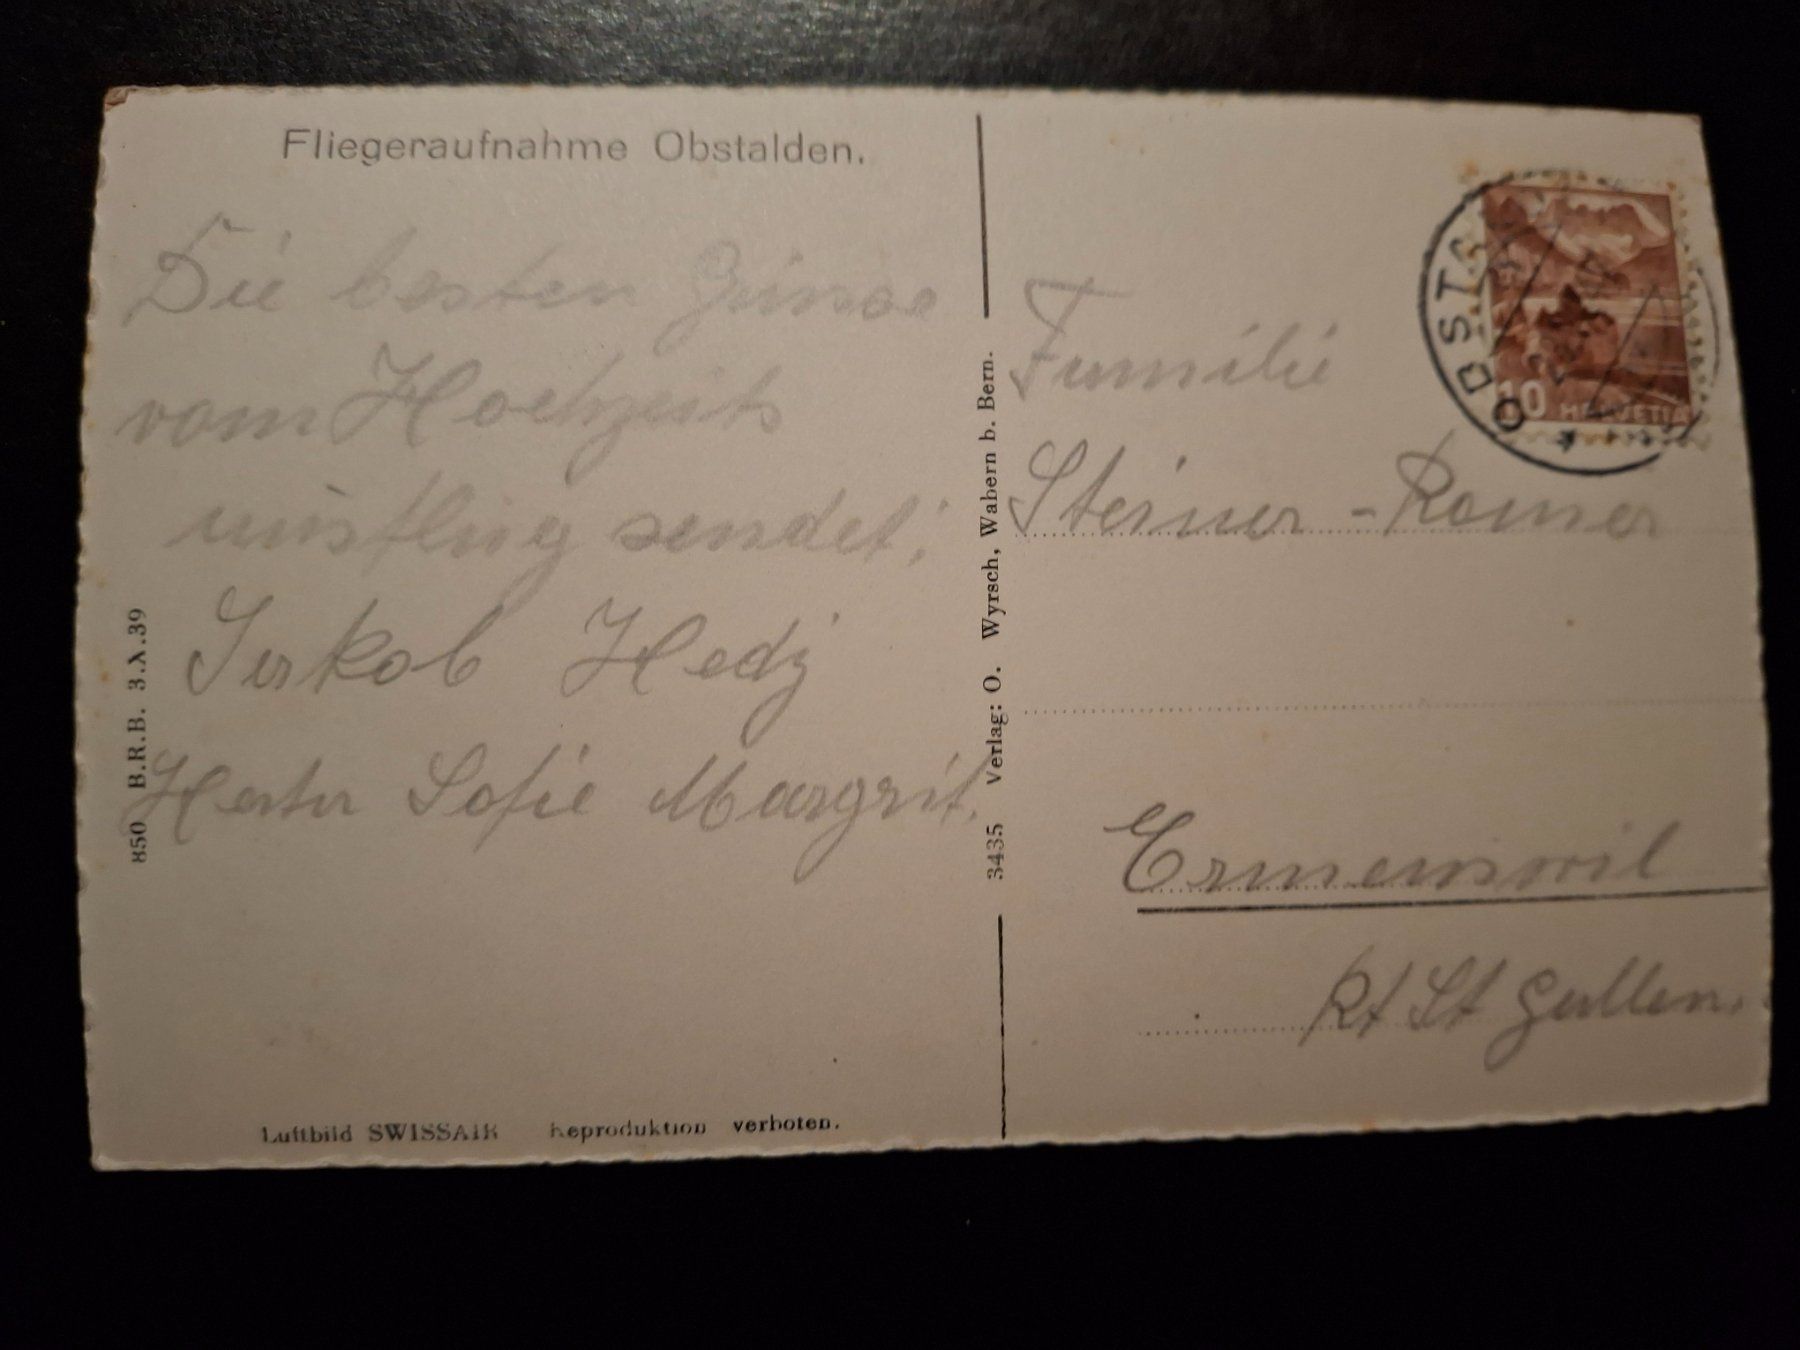 Fliegeraufnahme Obstalden.
Die besten Grüsse
vom Hochzeits
ausflug sendet;
Jakob Hedj
Herta Sofie Margrit.
850 B.R.B. 3.X.39
Luftbild SWISSAIR Reproduktion verboten.
3435 Verlag: O. Wyrsch, Wabern b. Bern.
OBSTA
10 HELVETIA
Familie
Steiner-Romer
Ermenswil
Kt St Gallen.